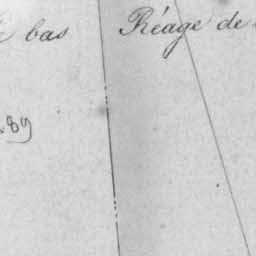 bas Réage de
89